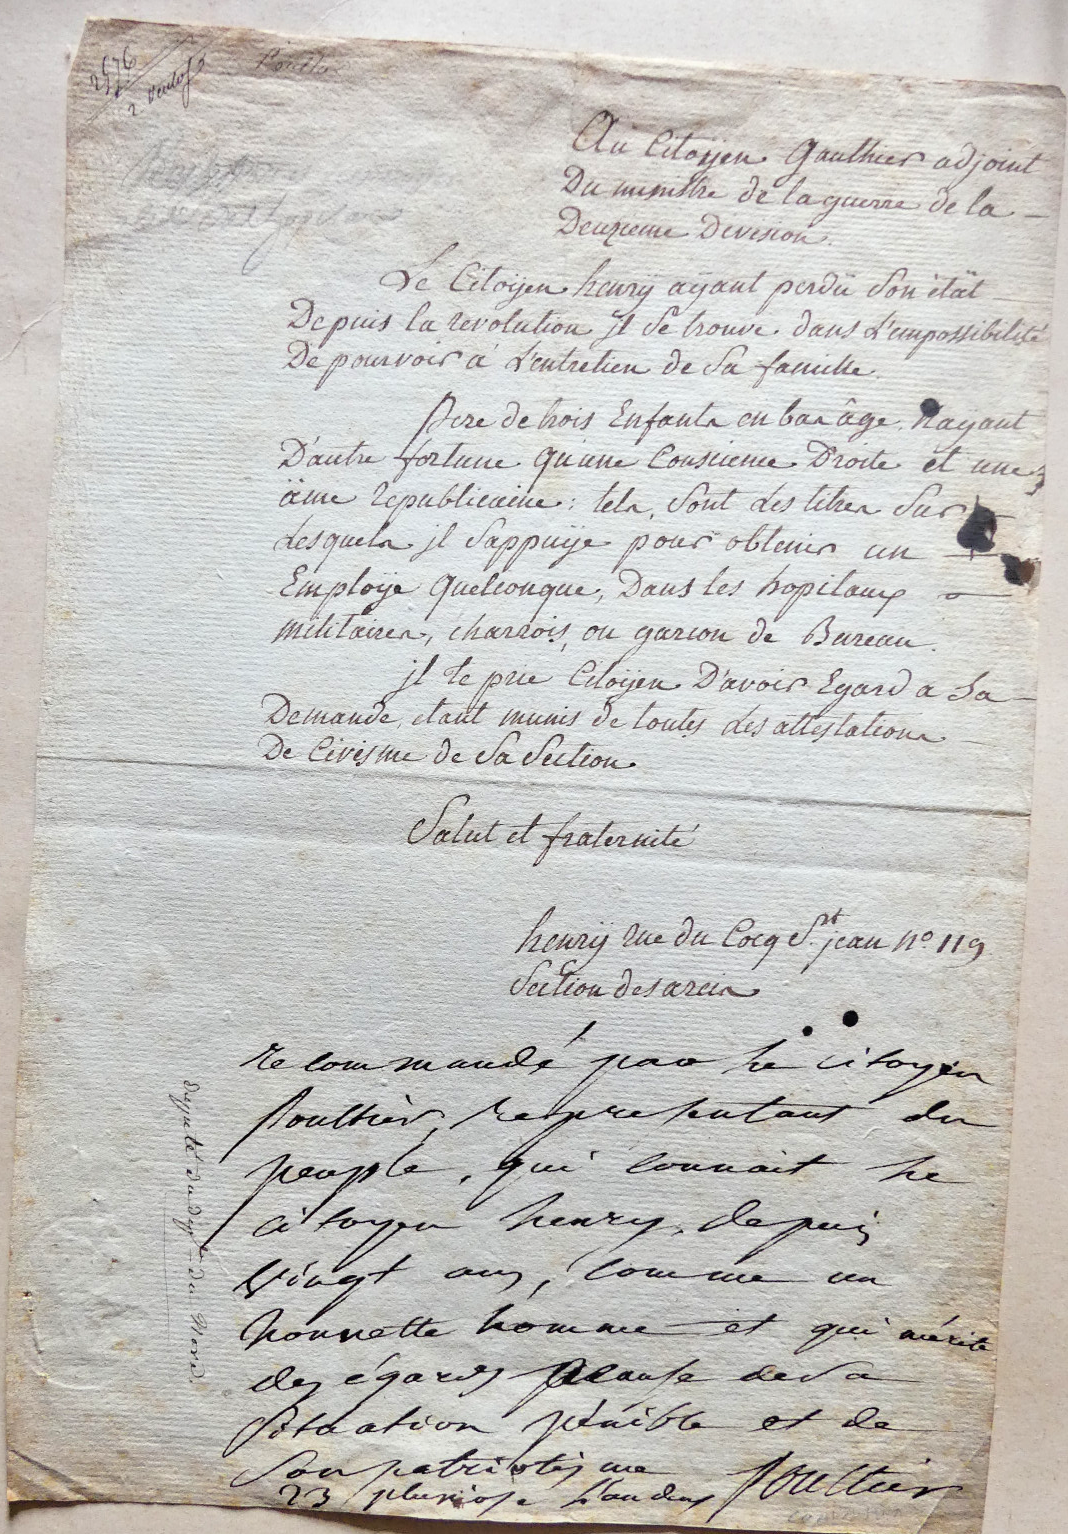 2576
2 ventose
Au Citoyen Gauthier adjoint
Du ministre de la guerre de la
Deuxieme Devision.
Le Citoÿen henrÿ aÿant perdü Son ètät
Depuis la revolution jl Se trouve dans L'empossibilité
De pourvoir a L'entretien de Sa famille.
Pere de trois Enfants en bas âge. Nayant
D'autre fortune Qu'une Consciense Droite et une
äme republicaine : tels Sont Les titres Sur
Lesquels jl S'appuÿe pour obtenir un
Emploÿe Quelconque, Dans les hopitaux
Militaires, charrois, ou garson de Bureau.
jl te prie Citoÿen D'avoir Egard a Sa
Demande, etant munis de toutes Les attestations
De Civisme de Sa Section.
Salut et fraternité
henrÿ rue du Cocq St. jean No. 119
Section des arcis
recommandé par le citoyen
Poultier, representant du
peuple, qui connait le
citoyen henry, depuis
vingt ans, comme un
honnette homme et qui mérite
des égards acause de Sa
Situation pénible et de
Son patriotisme
23 pluviose l'an deux Poultier
deputé du dept. du Nord.